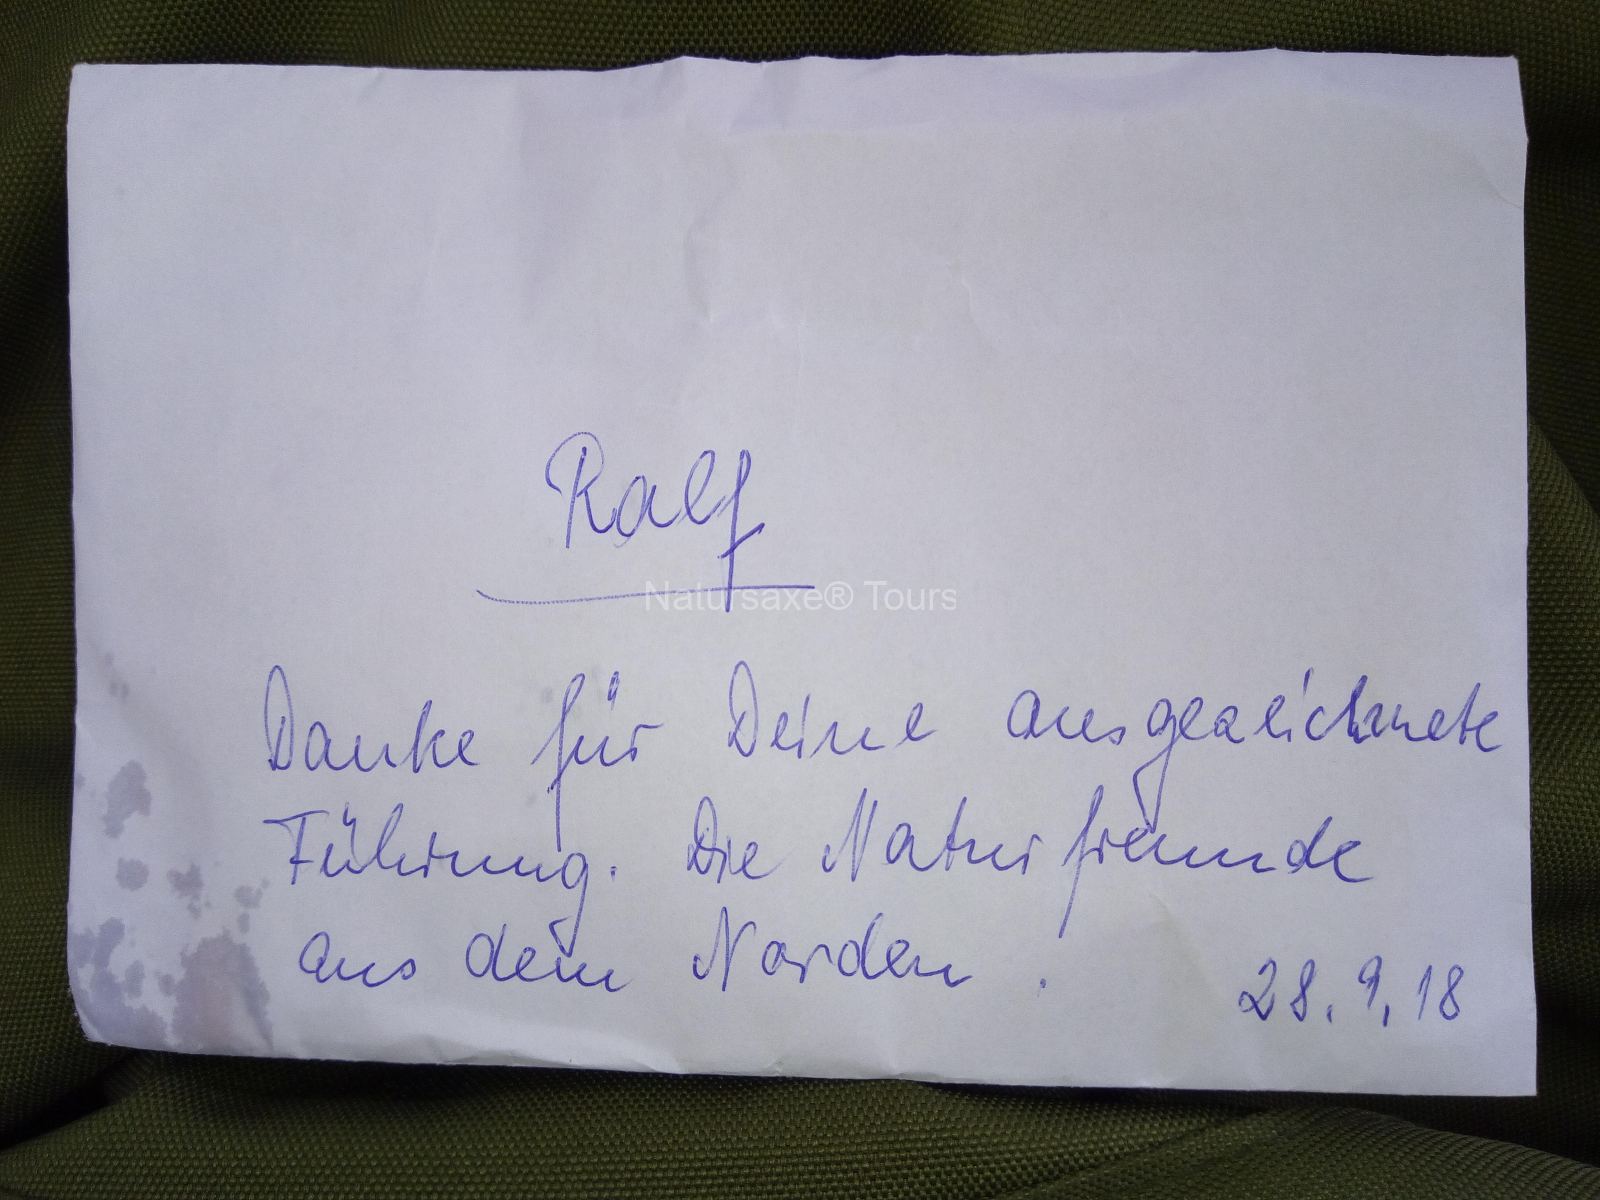 Ralf
Natursaxe® Tours
Danke für Deine ausgezeichnete
Führung. Die Naturfreunde
aus dem Norden.
28.9.18